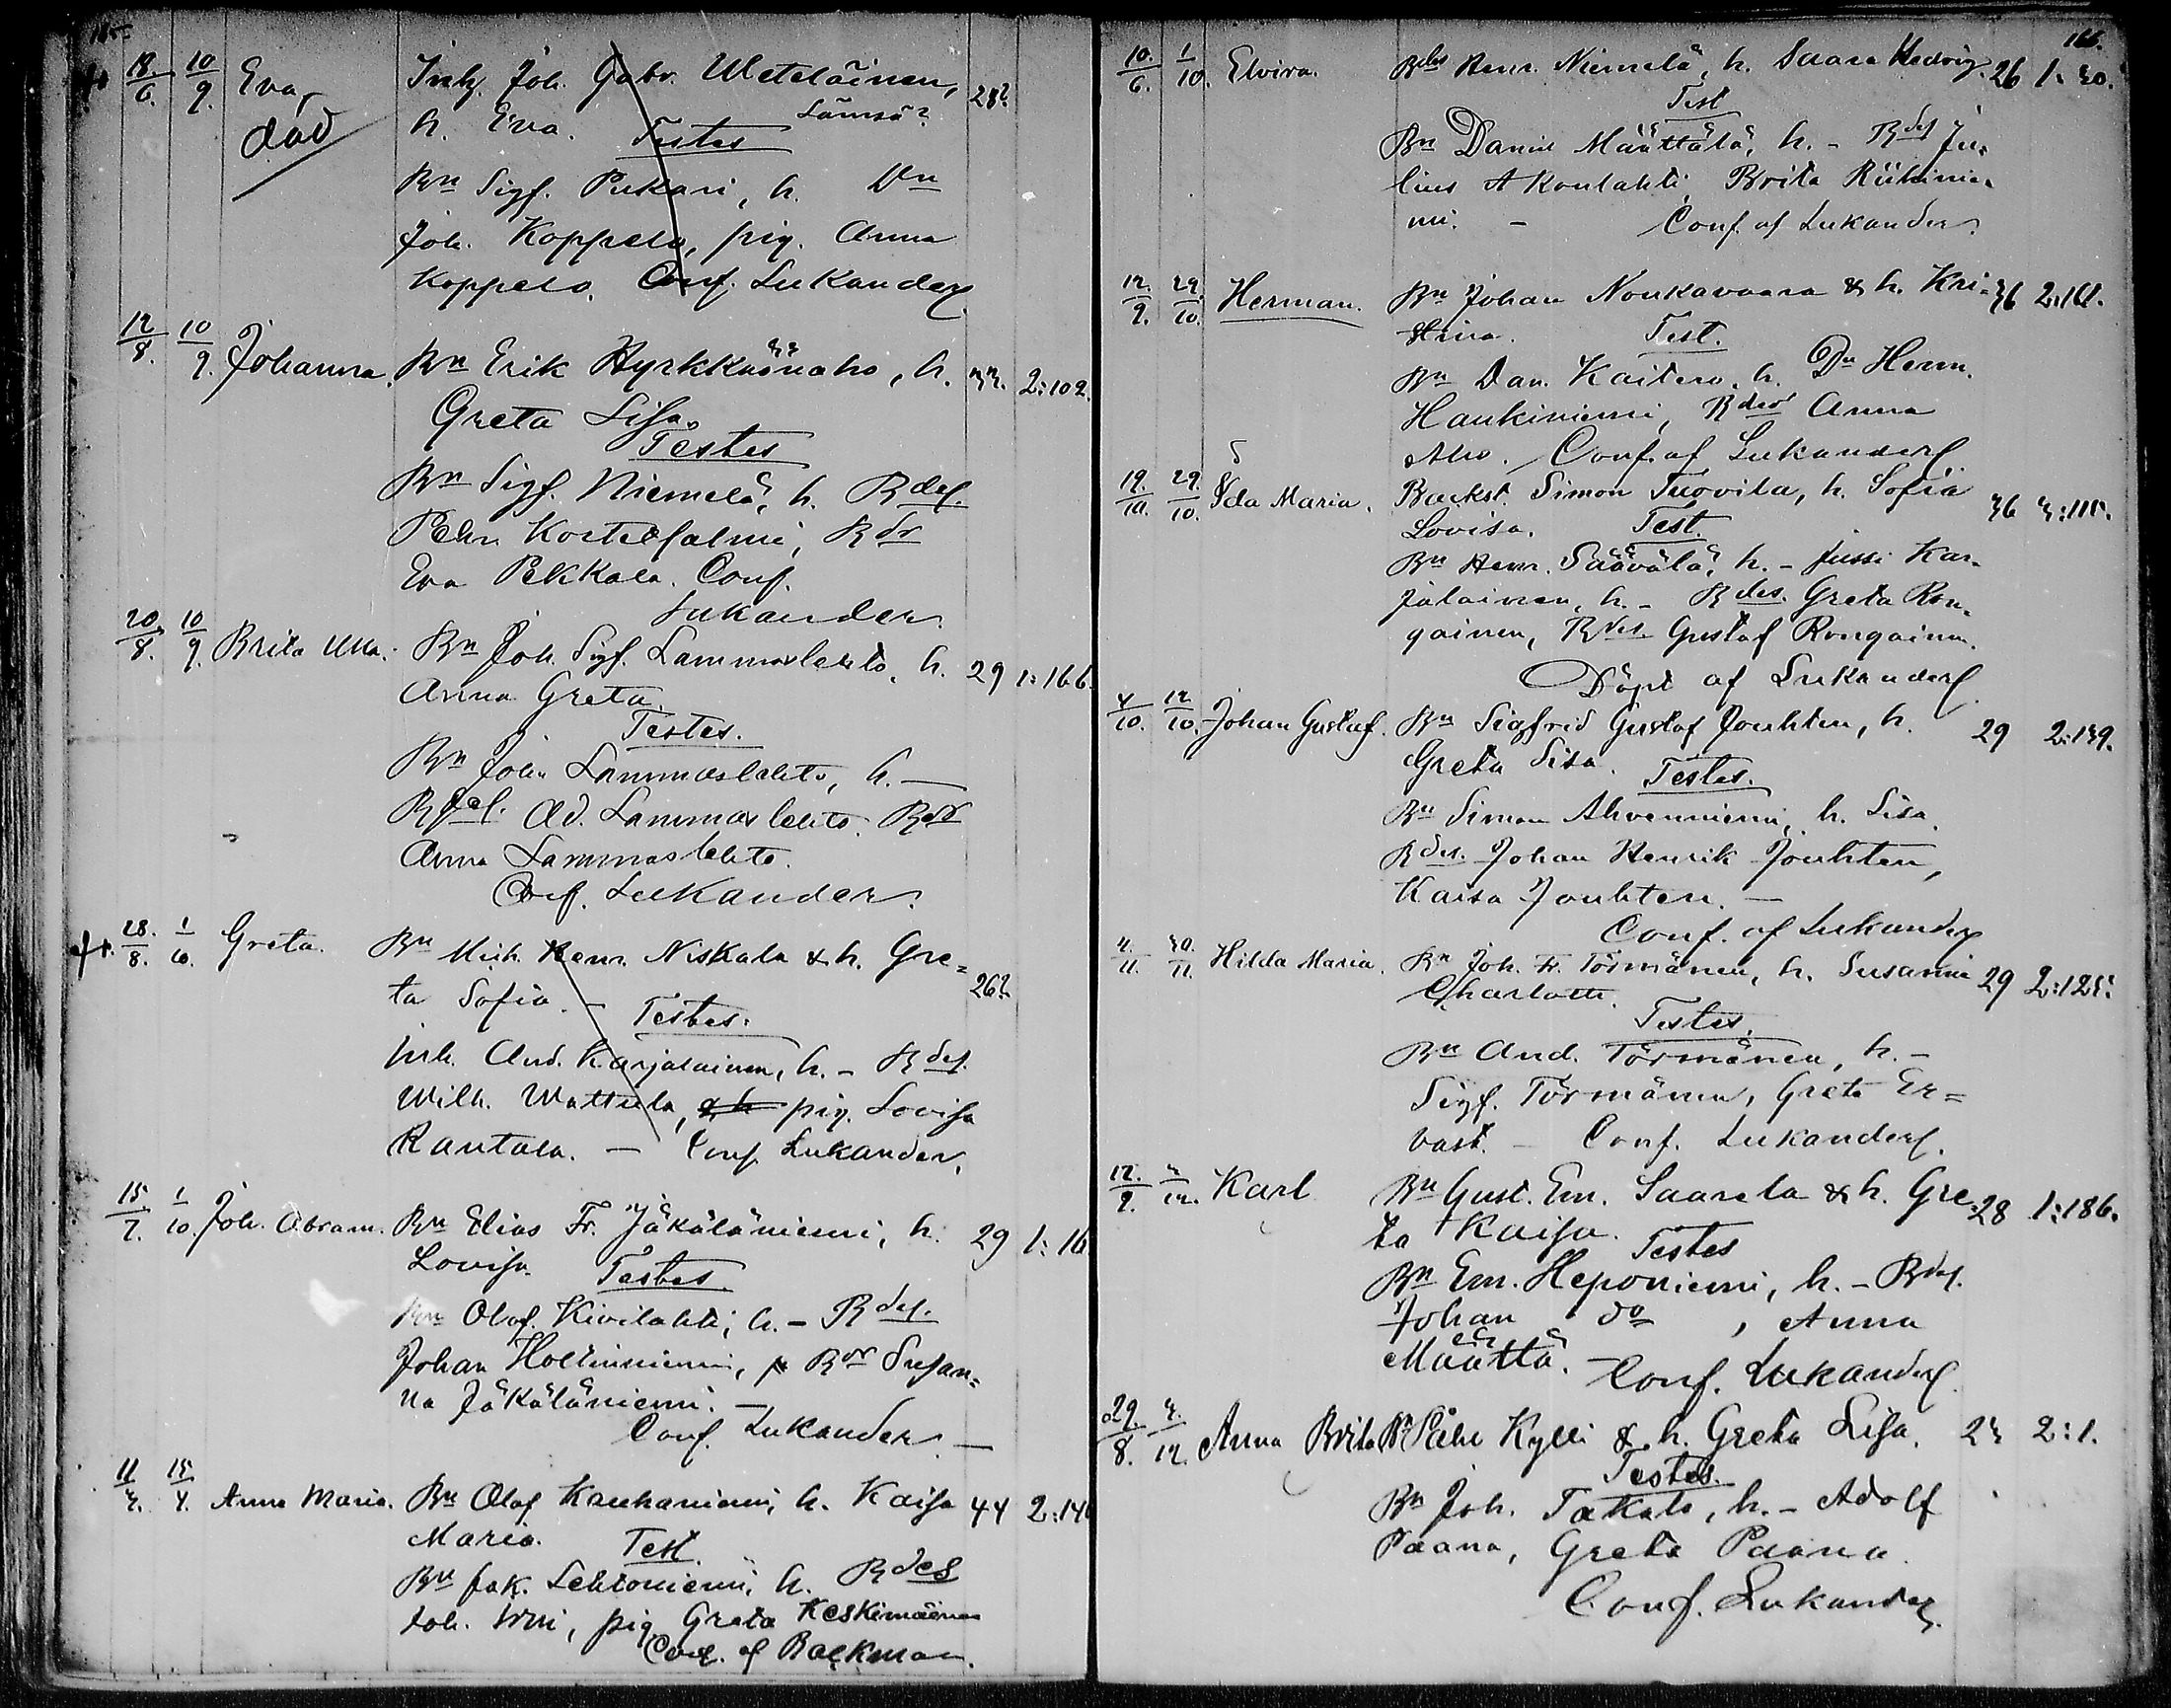 165
18/6. 10/9. Eva, Inh. Joh. Gabr. Weteläinen, 28?
död h. Eva. Lämsä?
Testes
Bn Sigf. Pukari, h. Dn
Joh. Koppelo, pig. Anna
Koppelo. Conf. Lukander.
12/8. 10/9. Johanna. Bn Erik Hyrkkäsnaho, h. 2:102.
Greta Lisa.
Testes
Bn Sigf. Niemelä, h. Bdes.
Pehr Kortesalmi, Bdr
Eva Pekkala. Conf.
Lukander.
20/8. 10/9. Brita Ulla. Bn Joh. Sigf. Lammaslehto, h. 29 1:166.
Anna Greta.
Testes.
Bn Joh. Lammaslehto, h. —
Bdes. Ad. Lammaslehto. Bdr
Anna Lammaslehto.
Conf. Lukander.
28./8. 1/10. Greta. Bn Mich. Henr. Niskala & h. Gre= 26?
ta Sofia. — Testes.
Inh. And. Karjalainen, h. — Bdes.
Wilh. Wattula, & h pig. Lovisa
Rantala. — Conf. Lukander.
15/7. 1/10. Joh. Abram. Bn Elias Fr. Jäkäläniemi, h. 29 1:16
Lovisa. Testes
Bn Olof. Kivilahti, h. — Bdes.
Johan Hoikinniemi, Bdr Susan=
na Jäkäläniemi. —
Conf. Lukander. —
11/3. 15/4. Anna Maria. Bn Olof Kauhaniemi, h. Kaisa 44 2:146
Maria. Test.
Bn Jak. Lehtoniemi, h. Bdes
Joh. pig. Greta Keskimäinen
Conf. af Backman.
166.
10./6. 1/10. Elvira. Bdes Henr. Niemelä, h. Saara Hedvig. 26 1:30.
Test
Bn Daniel Määttälä, h. — Bdes Ju-
lius Akonlahti, Brita Riihinie-
mi. — Conf. af Lukander.
12./9. 29./10. Herman. Bn Johan Noukavaara & h. Kri- 36 2:161.
stina. Test.
Bn Dan. Kaitero, h. Dn Herm.
Haukiniemi, Bdes Anna
Aho. Conf. af Lukander.
19./10. 29./10. Ida Maria. Backst. Simon Tuovila, h. Sofia 36 3:115.
Lovisa. Test.
Bn Henr. Säävälä, h. — Jussi Kar-
jalainen, h. — Bdes. Greta Ron-
gainen, Bdes. Gustaf Rongainen.
Döpt af Lukander.
4/10. 12/10. Johan Gustaf. Bn Sigfrid Gustaf Jouhten, h. 29 2:139.
Greta Lisa. Testes.
Bn Simon Ahvenniemi, h. Lisa.
Bdes. Johan Henrik Jouhten,
Kaisa Jouhten. —
Conf. af Lukander
4./11. 30./11. Hilda Maria. Bn Joh. Fr. Törmänen, h. Susanna 29 2:125.
Charlotta.
Testes.
Bn And. Törmänen, h. —
Sigf. Törmänen, Greta Er=
vast. — Conf. Lukander.
12./9. 3/12. Karl Bn Gust. Em. Saarela & h. Gre- 28 1:186.
ta Kaisa. Testes
Bn Em. Heponiemi, h. — Bdes.
Johan do, Anna
Määttä. — Conf. Lukander.
29./8. 3./12. Anna Brita Bn Påhl Kylli & h. Greta Lisa. 23 2:1.
Testes.
Bn Joh. Takalo, h. — Adolf
Paana, Greta Paana.
Conf. Lukander.